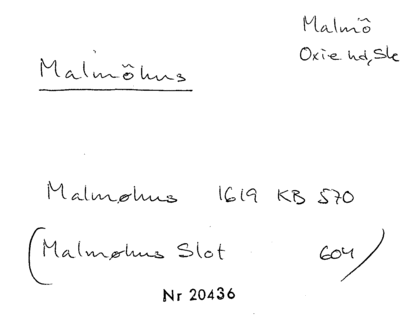 Malmö
Oxie hd, Sk
Malmöhus
Malmøhus 1619 KB 570
(Malmøhus Slot 604)
Nr 20436